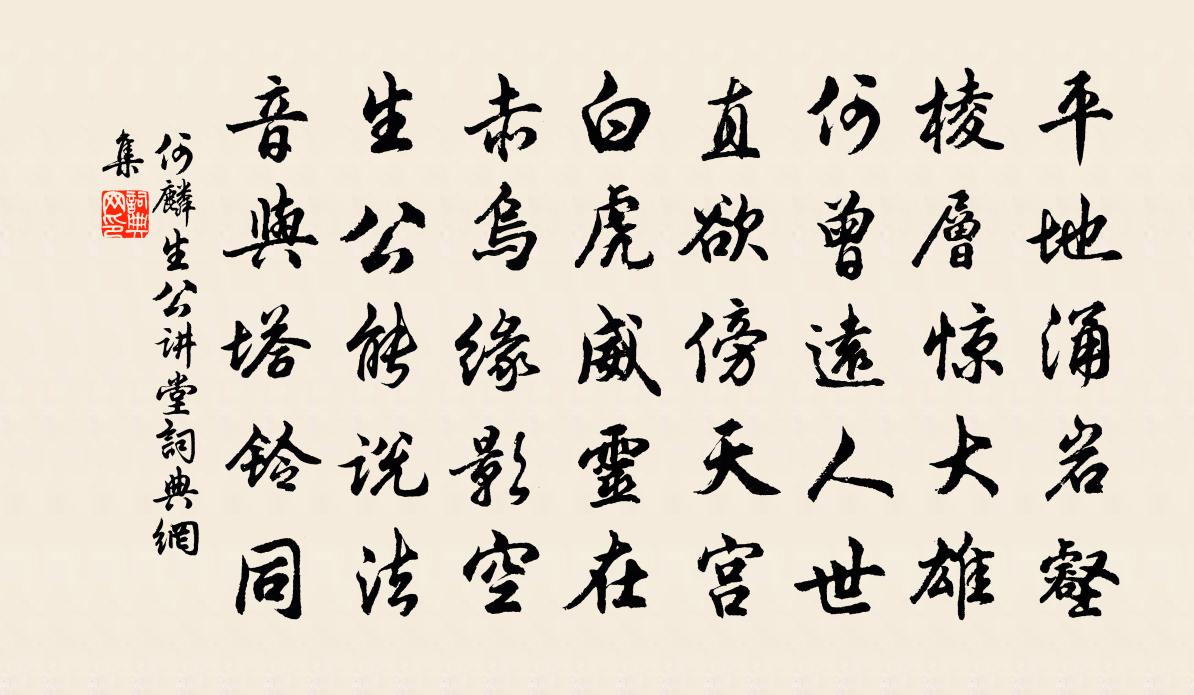 平地涌岩壑
棱層惊大雄
何曾遠人世
直欲傍天宫
白虎威靈在
赤烏緣影空
生公能说法
音與塔鈴同
何麟生公讲堂詞典網
集
詞典網印